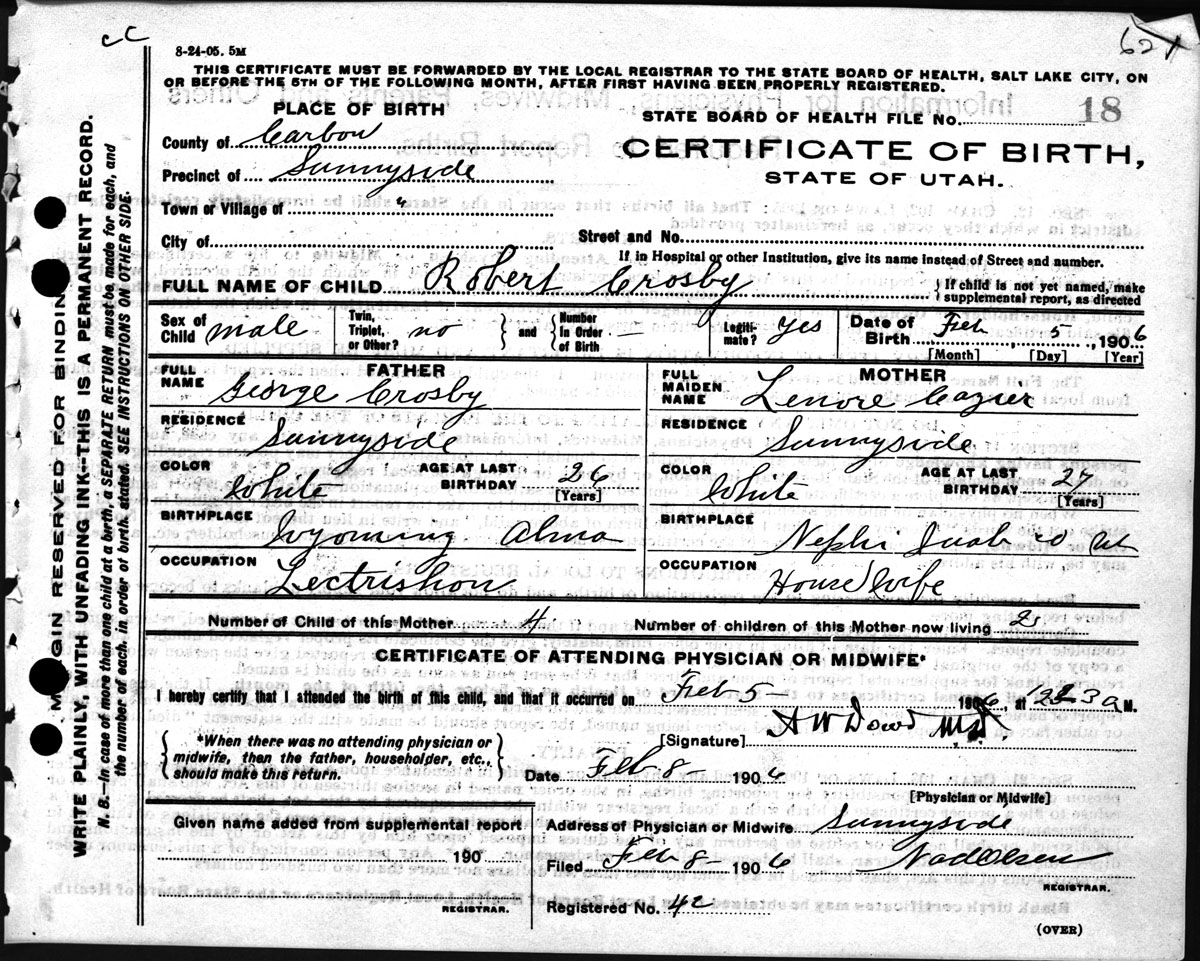 cc
8-24-05. 5M
62
THIS CERTIFICATE MUST BE FORWARDED BY THE LOCAL REGISTRAR TO THE STATE BOARD OF HEALTH, SALT LAKE CITY, ON
OR BEFORE THE 5TH OF THE FOLLOWING MONTH, AFTER FIRST HAVING BEEN PROPERLY REGISTERED.
PLACE OF BIRTH
STATE BOARD OF HEALTH FILE No. 18
County of Carbon
CERTIFICATE OF BIRTH,
Precinct of Sunnyside
STATE OF UTAH.
Town or Village of "
City of
Street and No.
If in Hospital or other Institution, give its name instead of Street and number.
FULL NAME OF CHILD Robert Crosby { If child is not yet named, make supplemental report, as directed
Sex of Child male Twin, Triplet, or Other? no } and { Number in Order of Birth — Legitimate? yes Date of Birth Feb 5, 1906
[Month] [Day] [Year]
FATHER
MOTHER
FULL NAME George Crosby
FULL MAIDEN NAME Lenore Cazier
RESIDENCE Sunnyside
RESIDENCE Sunnyside
COLOR White AGE AT LAST BIRTHDAY 26 [Years]
COLOR White AGE AT LAST BIRTHDAY 27 [Years]
BIRTHPLACE Wyoming Alma
BIRTHPLACE Nephi Juab co Ut
OCCUPATION Lectrishon
OCCUPATION House Wife
Number of Child of this Mother 4 Number of children of this Mother now living 2
CERTIFICATE OF ATTENDING PHYSICIAN OR MIDWIFE*
I hereby certify that I attended the birth of this child, and that it occurred on Feb 5- 1906, at 3 a M.
[Signature] A W Dowd M.D.
{ *When there was no attending physician or midwife, then the father, householder, etc., should make this return. }
Date Feb 8- 1906
[Physician or Midwife]
Given name added from supplemental report
190
REGISTRAR.
Address of Physician or Midwife Sunnyside
Filed Feb 8- 1906
REGISTRAR.
Registered No. 42
(OVER)
MARGIN RESERVED FOR BINDING
WRITE PLAINLY, WITH UNFADING INK--THIS IS A PERMANENT RECORD.
N. B.—In case of more than one child at a birth, a SEPARATE RETURN must be made for each, and
the number of each, in order of birth, stated. SEE INSTRUCTIONS ON OTHER SIDE.